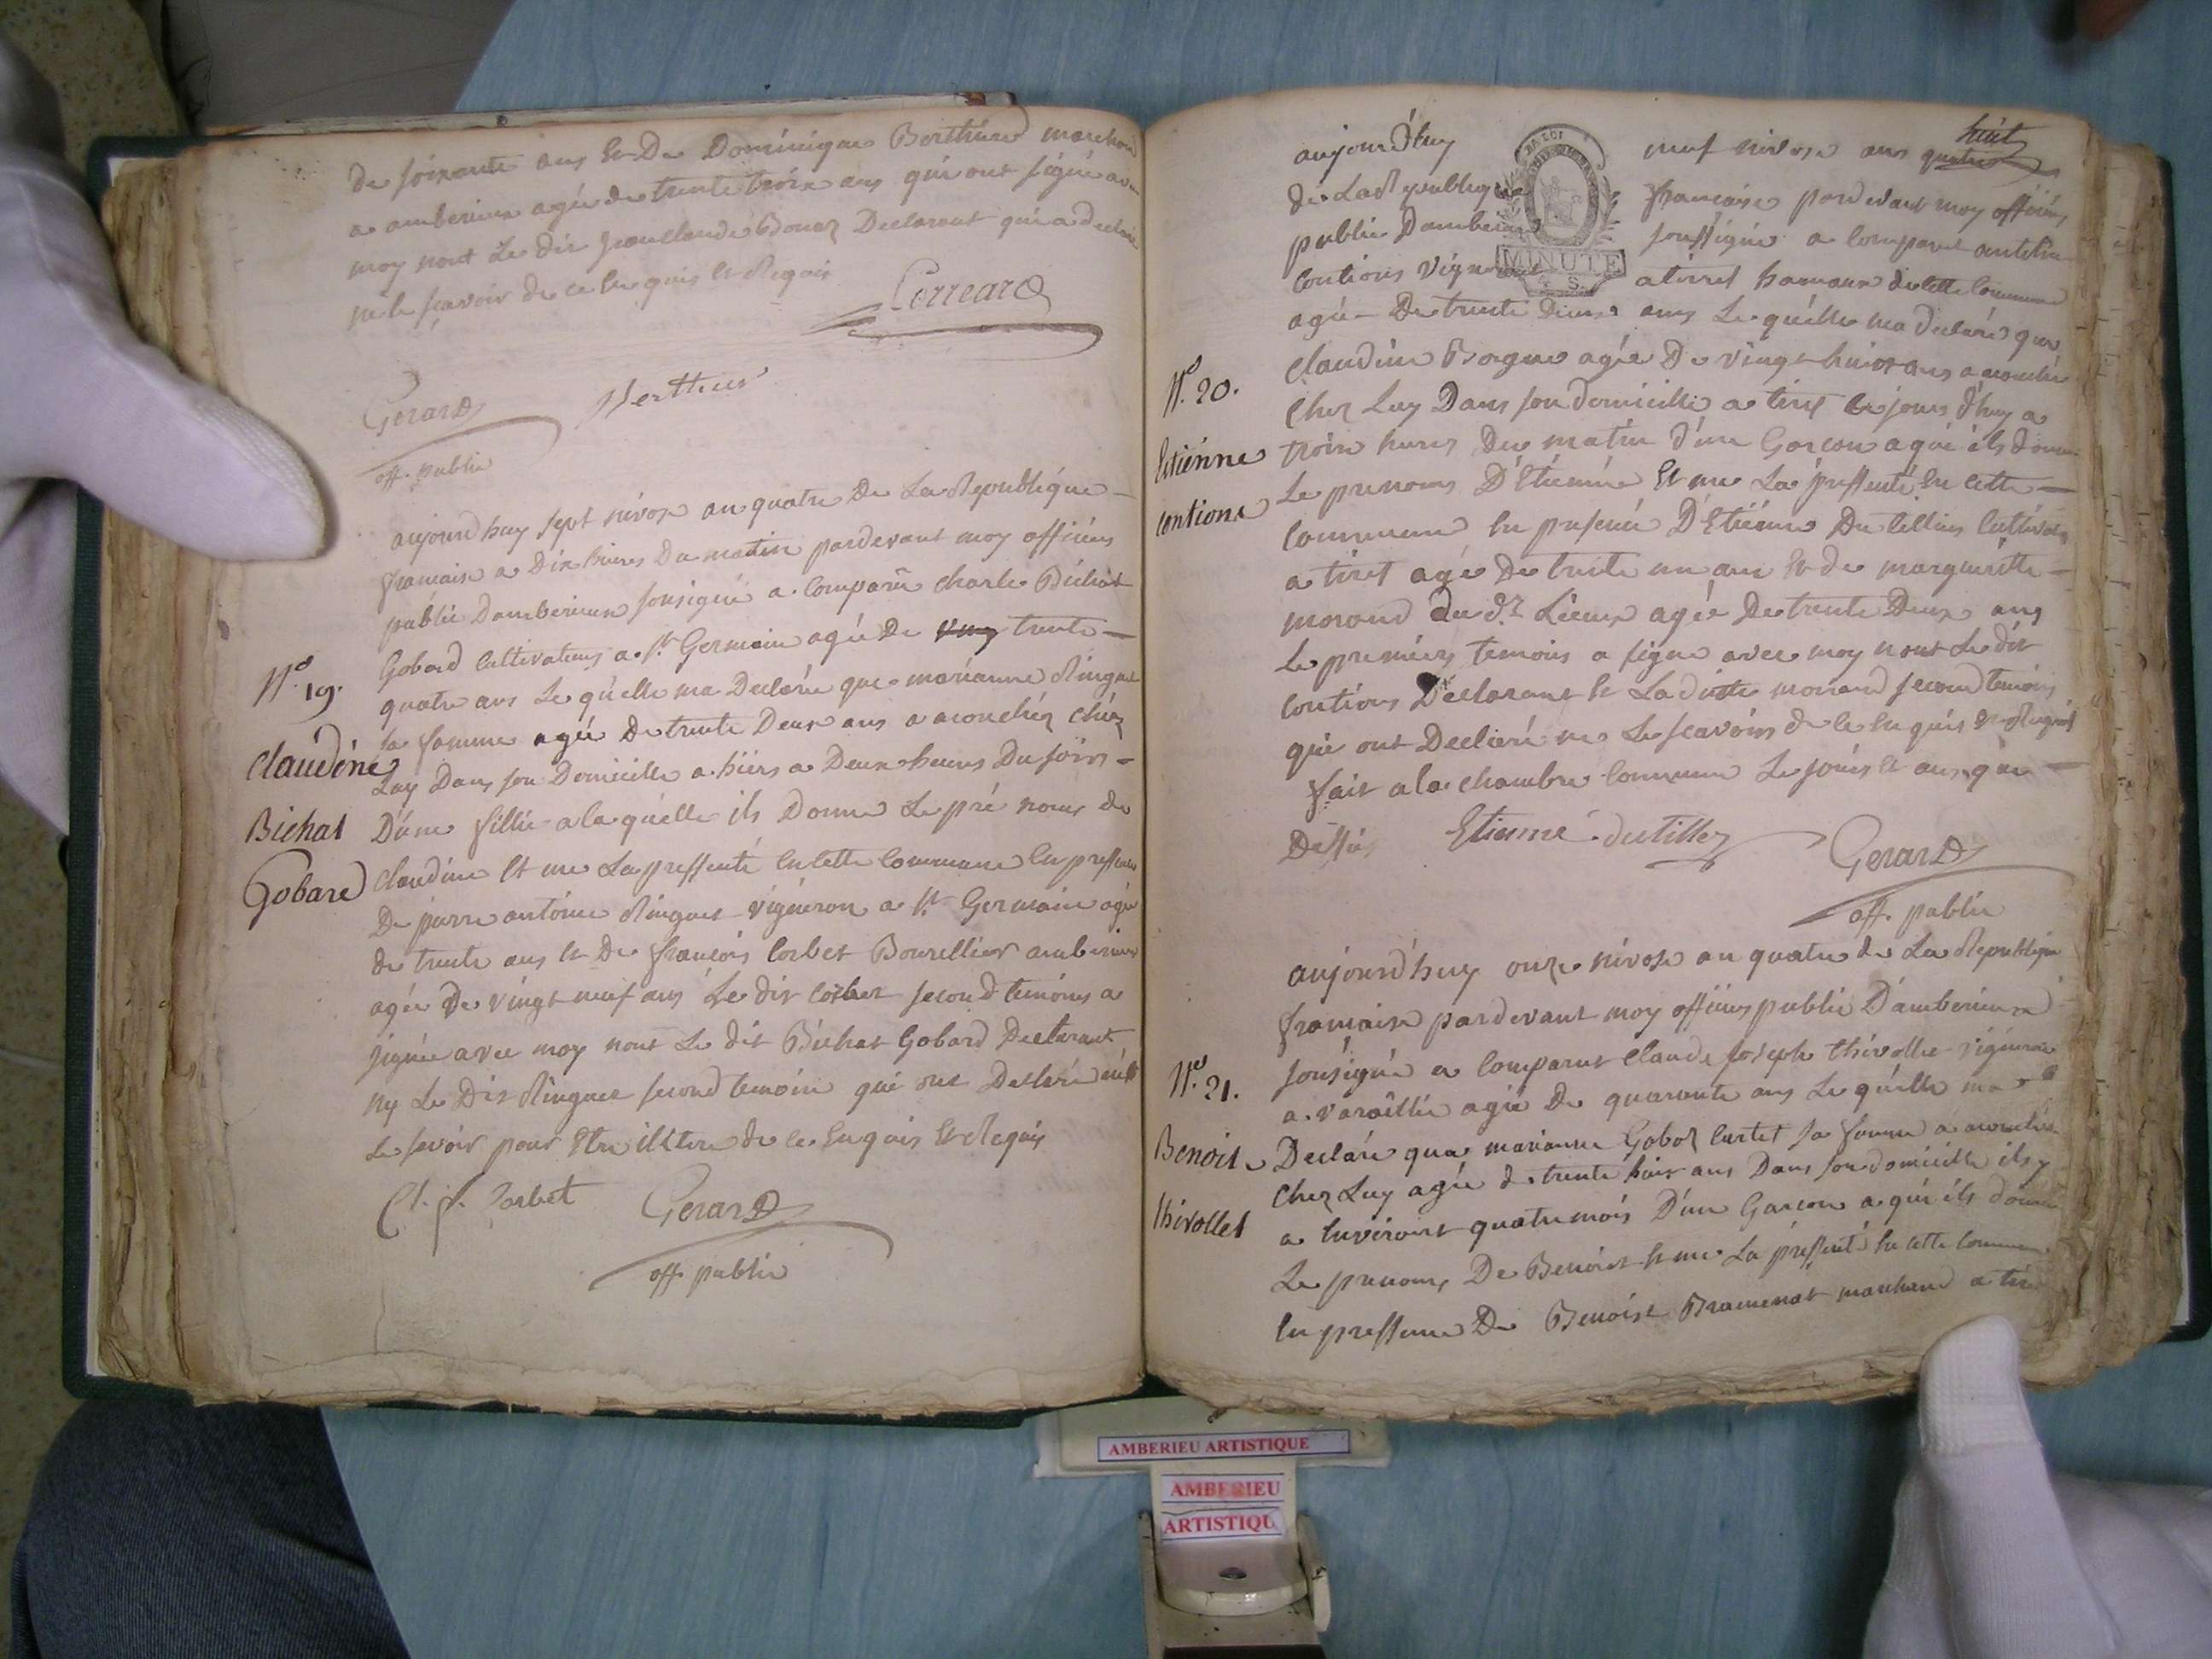 de soixante ans Et De Dominique Berthier marchand
a amberieux agée de trente troix ans qui ont signé avec
moy nont Le dit Jean Claude Bonaz Declarant qui a declaré
ne le scavoir de ce Enquis Et Requis
Correard
Gerard Bertthier
off. public
aujourd huy sept nivose an quatre De La Republique
francaise a Dix heures Du matin pardevant moy officiers
public Damberieux sousigné a Comparûe charle Bichat
N.° 19.
Claudine
Bichat
Gobard
Gobard Cultivateurs a S.t Germain agée De vingt trente
quatre ans Le quelle ma Declarée que marianne Ringuet
sa famme agée De trente Deux ans a acouchéz chéz
Luy Dans son Domicille a hiers a Deux heures Du soirs
D'une fillie a la quelle ils Donne Le pré noms de
claudine Et me La pressenté En cette Commune En pressence
De pierre antoine Ringuet vigneron a S.t Germain agé
de trente ans Et De francois Corbet Bourellier amberieux
agée De vingt neuf ans Le dit Corbet second temoins a
signée avec moy nont Le dit Bichat Gobard Declarant
ny Le Dit Ringuet second temoin qui ont Declaré
Le savoir pour Etre illitere de ce Enquis Et Requis
Cl. f. Corbet Gerard
off. public
aujourd'huy neuf nivose ans quatre huit
de La Republique francaise pardevant moy officiers
public Damberieux soussigné a Comparut
Coutions vigneron a tiret hameaux de cette Commune
MINUTE
agée De trente Deux ans Le quelle ma declaré que
N.° 20.
Estiénne
Contions
claudine Bogne agée De vingt huit ans a acouchée
chez Luy Dans son domicille a tiret Ce jours d'huy a
trois heures Du matin d'un Garcon a qui ils donne
Le prenoms D'Etienne Et me La pressenté En cette
Commune En presence D'Etienne Du tillier Cultivateur
a tiret agé De trente un ans Et de marguerite
morand du d.t Lieux agée De trente Deux ans
Le premiers temoins a signé avec moy nont Le dit
Coutions Declarant Et La ditte morand second temoins
qui ont Declaré ne Le scavoirs de ce Enquis Et Requis
fait a la chambre Commune Le jours Et ans que
Dessus Etienne dutillez Gerard
off. public
aujourd'huy onze nivose an quatre de La Republique
francaise pardevant moy officiers public D'amberieux
N.° 21.
Benoit
thivollet
sousigné a Comparut Claude Joseph thivollet vigneron
a varaillie agée De quarante ans Le quelle ma
Declaré que marianne Goboz Curtet sa famme a acouchée
chez Luy agée de trente huit ans Dans son domicille ils y
a Environt quatre mois D'un Garcon a qui ils donne
Le prenoms De Benoist Et me La pressenté En cette Commune
En pressence De Benoist Bramerat marchand a tiret
AMBERIEU ARTISTIQUE
AMBERIEU
ARTISTIQU